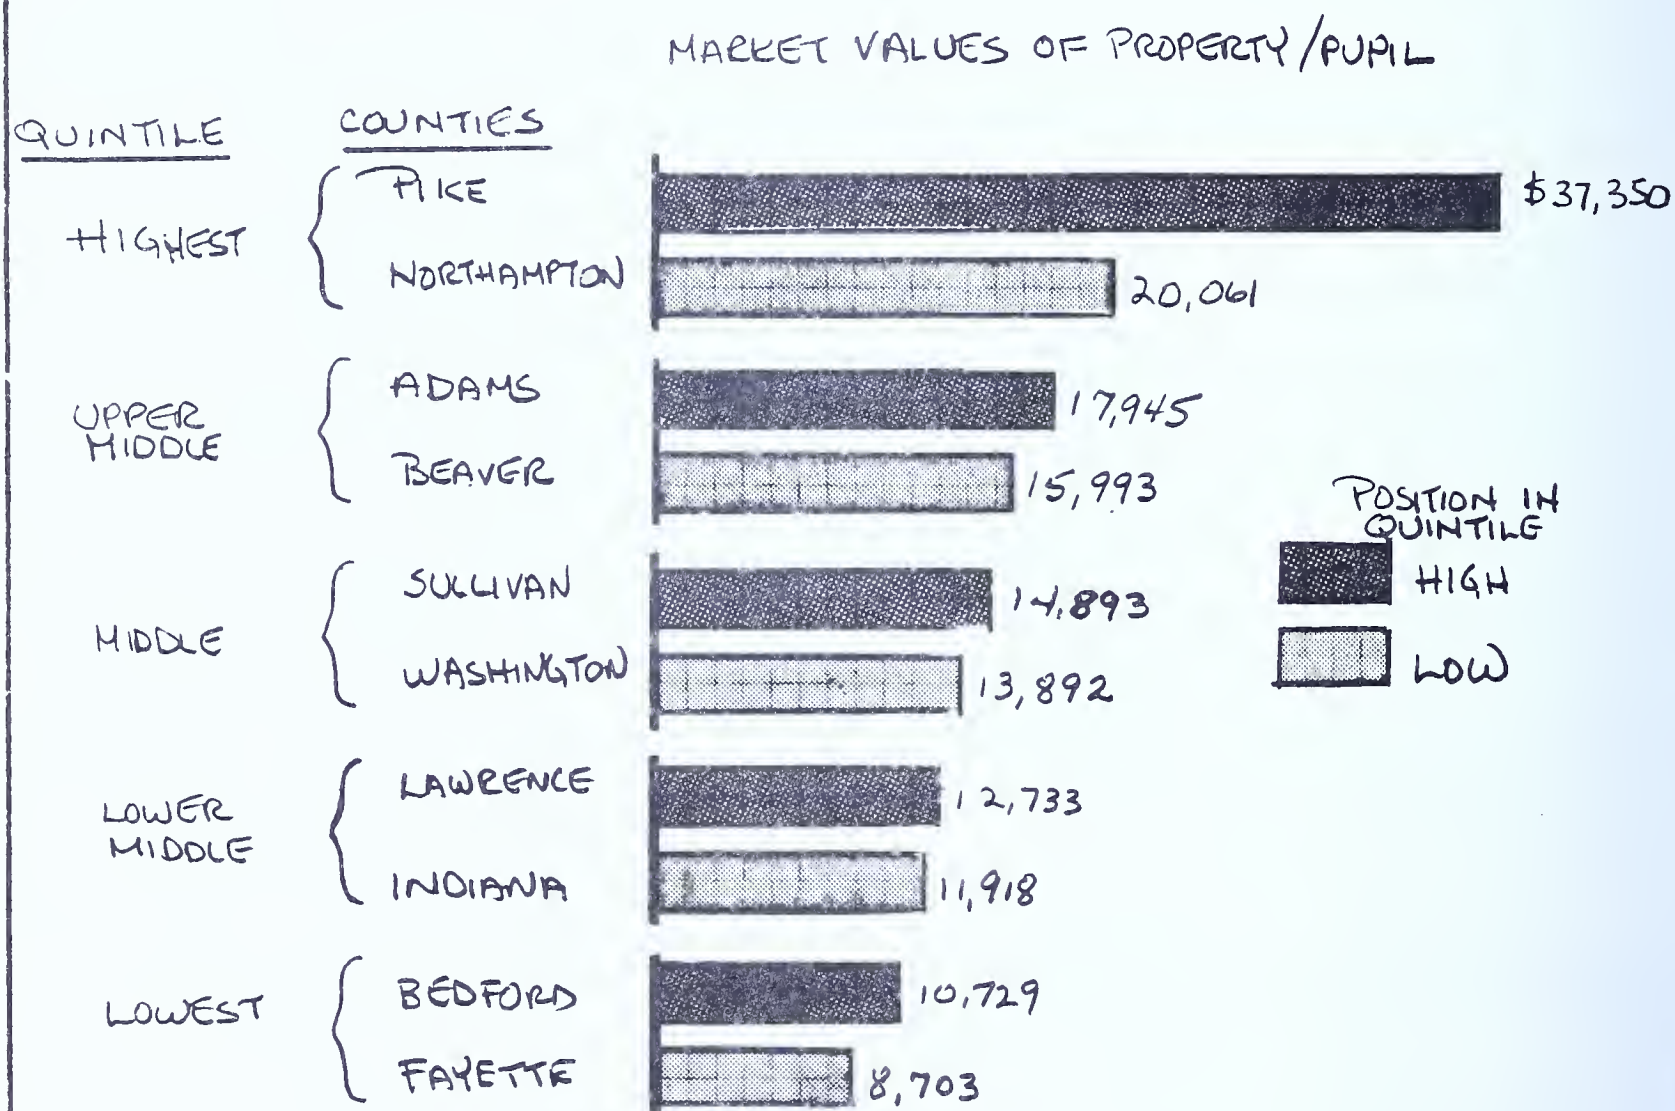 MARKET VALUES OF PROPERTY/PUPIL
QUINTILE COUNTIES
HIGHEST
PIKE $37,350
NORTHAMPTON 20,061
UPPER
MIDDLE
ADAMS 17,945
BEAVER 15,993
MIDDLE
SULLIVAN 14,893
WASHINGTON 13,892
LOWER
MIDDLE
LAWRENCE 12,733
INDIANA 11,918
LOWEST
BEDFORD 10,729
FAYETTE 8,703
POSITION IN
QUINTILE
HIGH
LOW